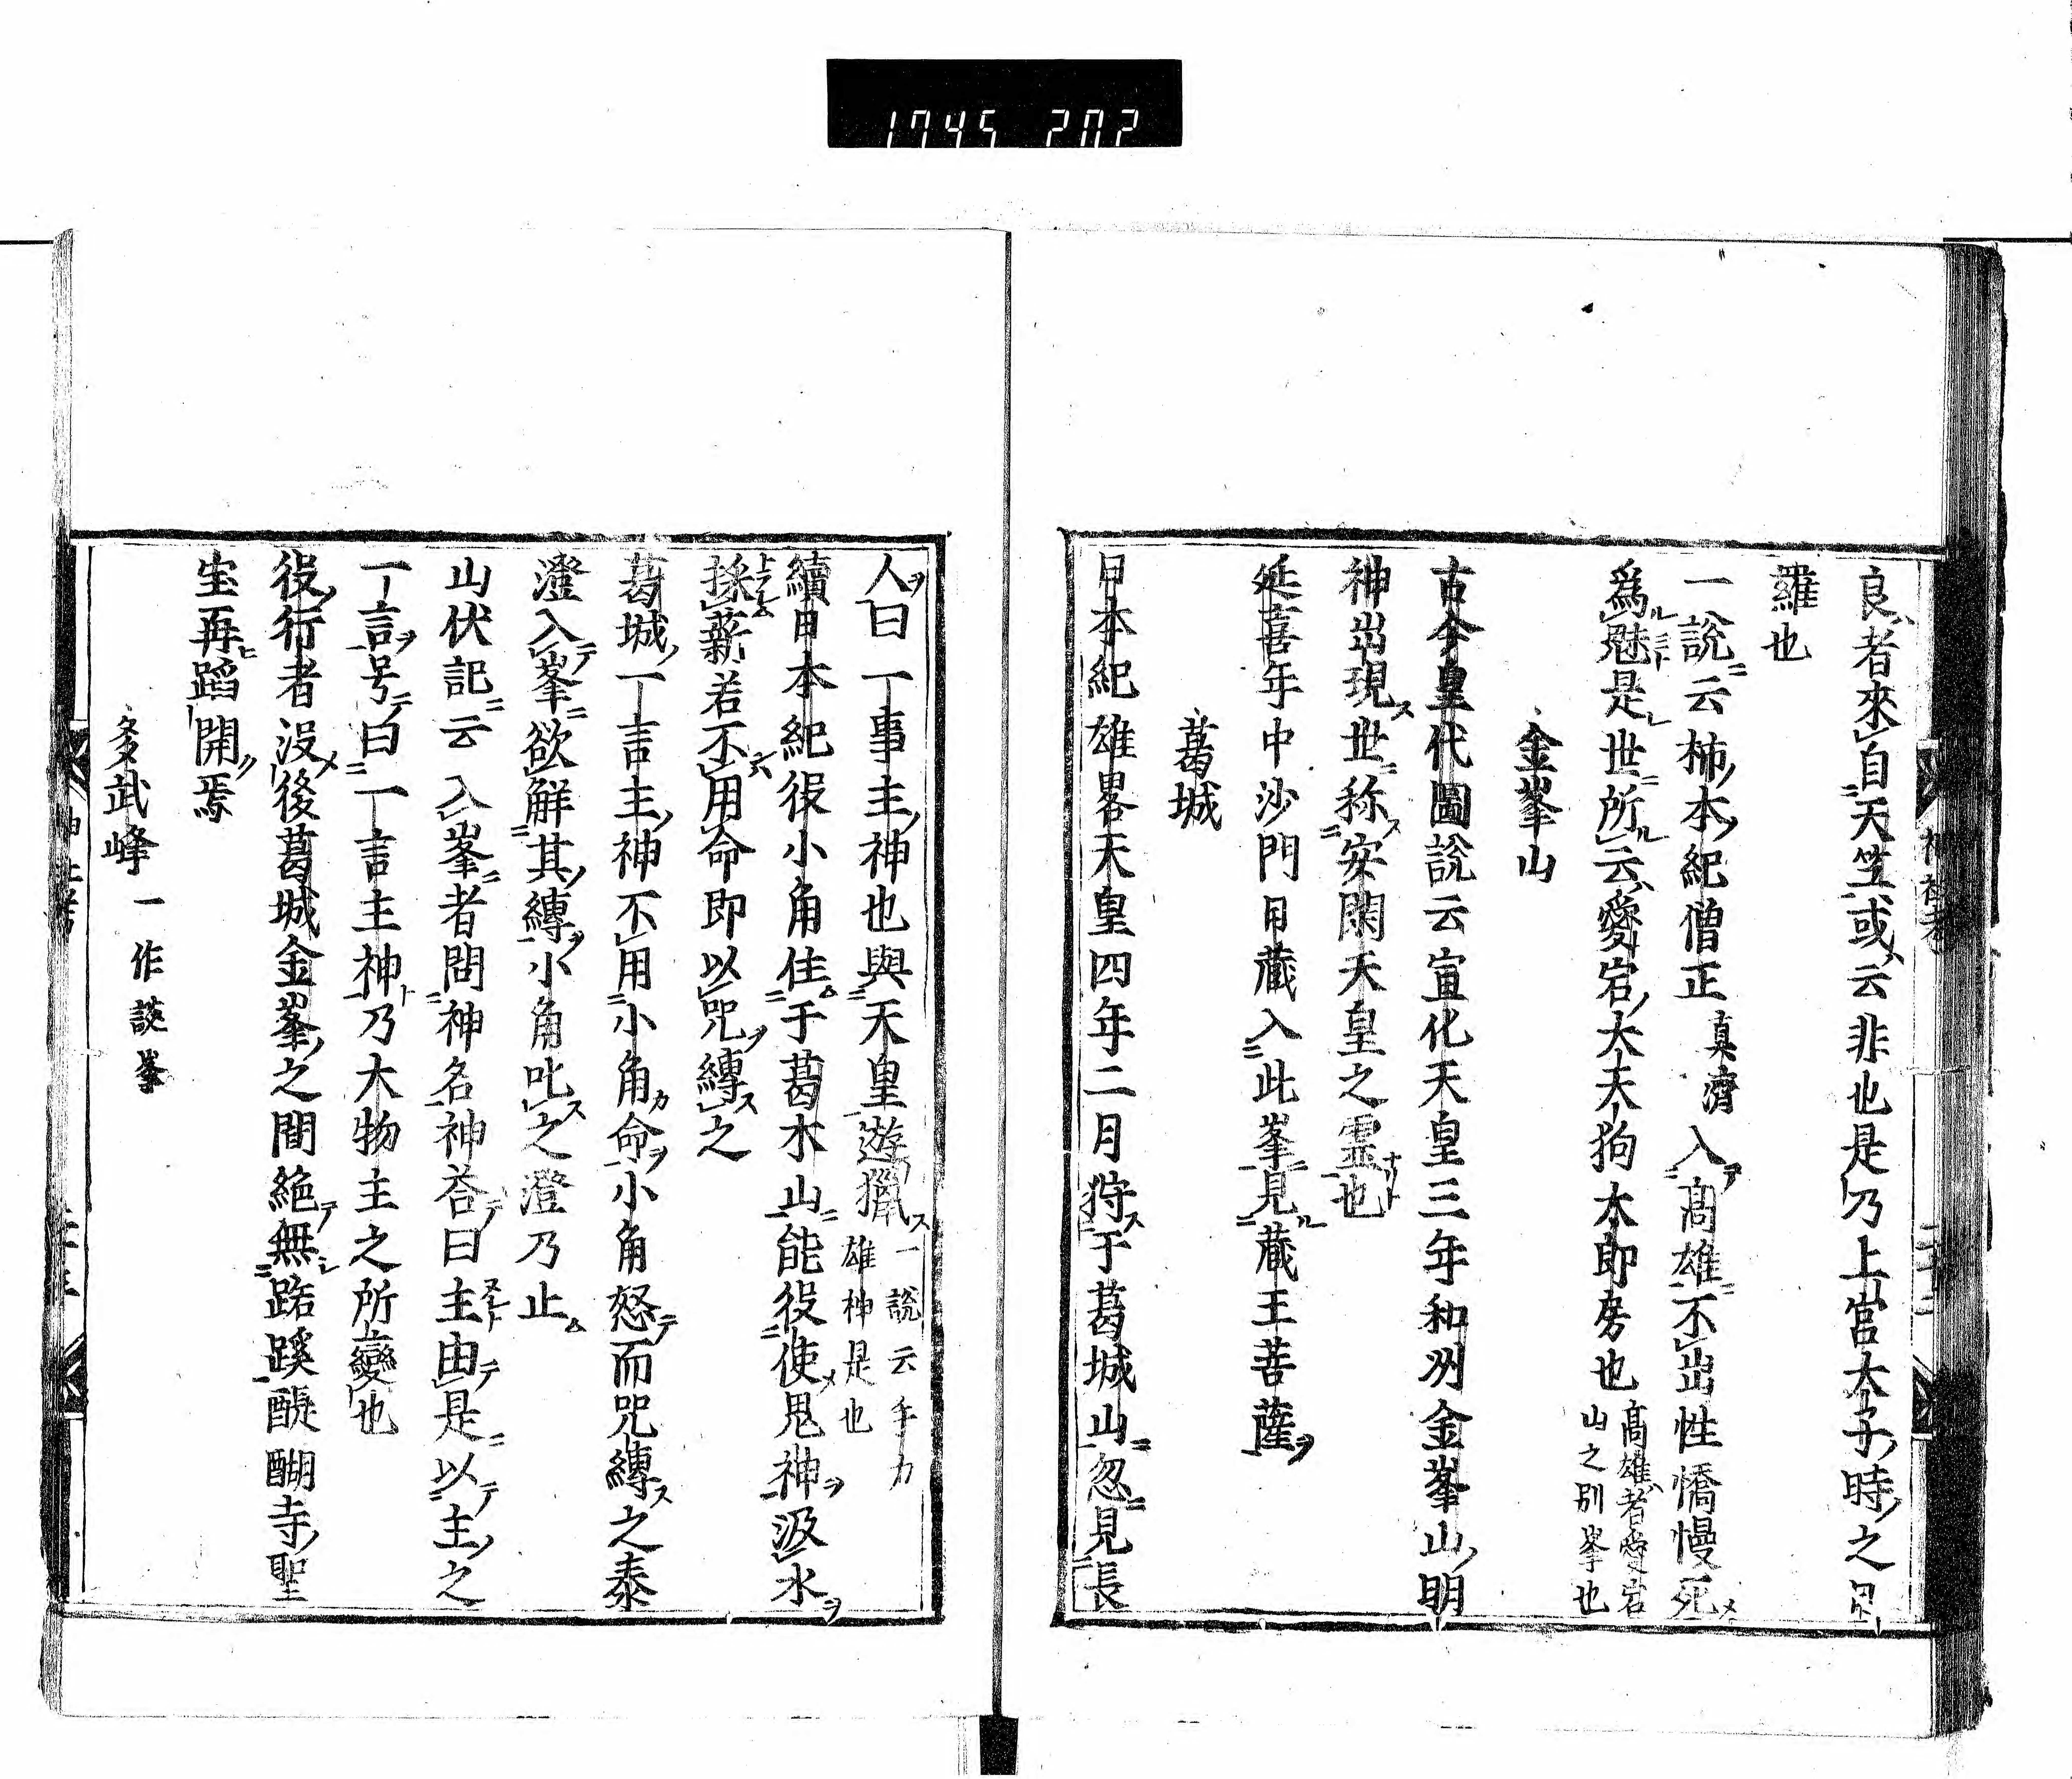 1745 202
良者來自天竺或云非也是乃上宮太子時之日
羅也
一說云柿本紀僧正真濟入髙雄不出性憍慢死
爲魅是世所云愛宕大夫狗太郎房也髙雄者愛宕
山之別峯也
金峯山
古今皇代圖說云宣化天皇三年和州金峯山明
神出現世称安閑天皇之霊也
延喜年中沙門日蔵入此峯見蔵王菩薩
葛城
日本紀雄畧天皇四年二月狩于葛城山忽見長
人曰一事主神也與天皇遊獵一說云手力
雄神是也
續日本紀役小角住于葛木山能役使鬼神汲水
採薪若不用命即以咒縛之
葛城一言主神不用小角命小角怒而咒縛之泰
澄入峯欲解其縛小角叱之澄乃止
山伏記云入峯者問神名神荅曰主由是以主之
一言号曰一言主神乃大物主之所變也
役行者沒後葛城金峯之間絶無踏蹊醍醐寺聖
宝再蹈開焉
多武峰一作談峯